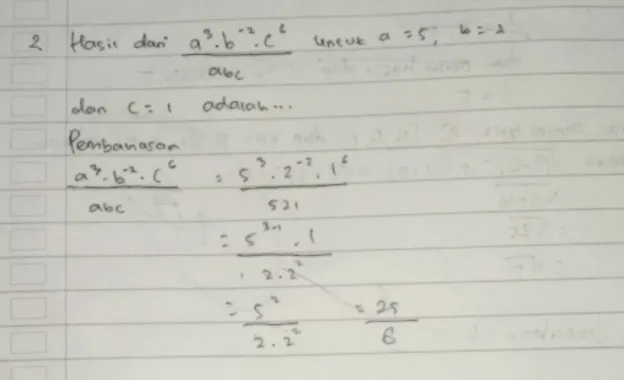 2 Hasil dari a³.b⁻².c⁶ / abc untuk a = 5, b = 2
dan c = 1 adalah...
Pembahasan
a³.b⁻².c⁶ / abc = 5³.2⁻².1⁶ / 521
= 5³⁻¹.1 / 2.2²
= 5² / 2.2² = 25 / 8